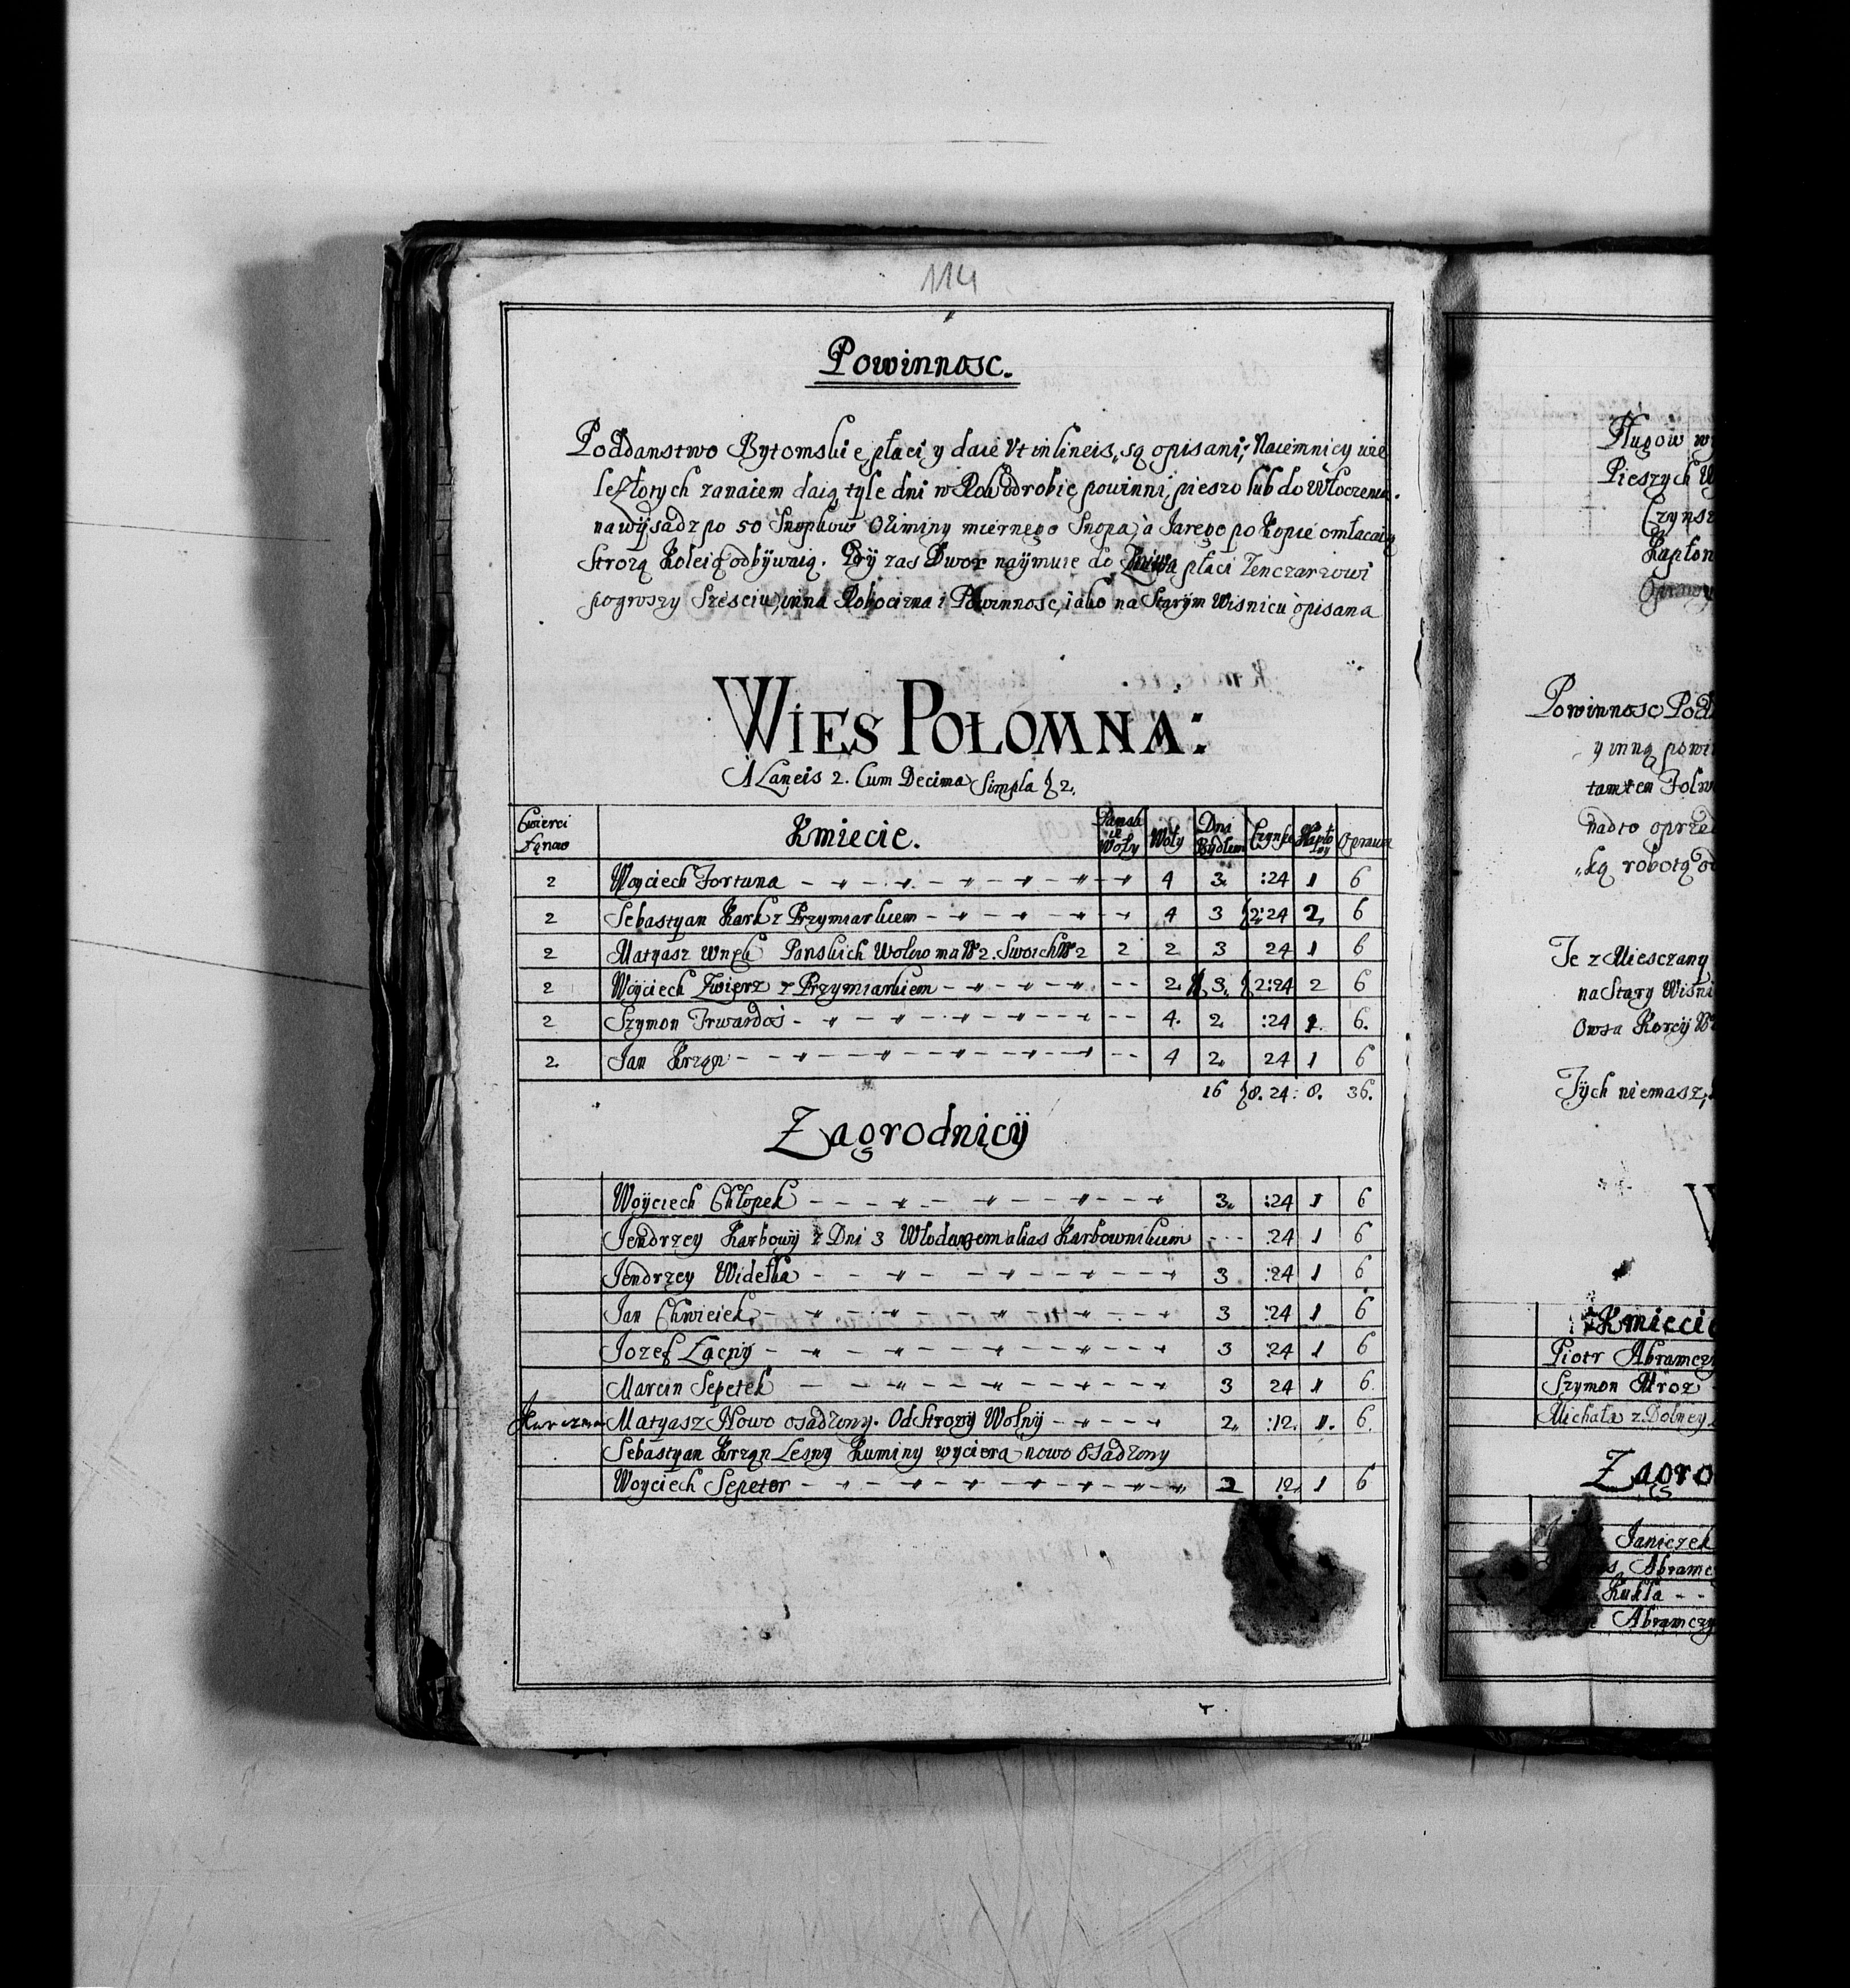 114
Powinnosc.
Poddanstwo Bytomskie płaci y daie Vt in lineis, są opisani; Naiemnicy wie
le złotych zanaiem daią, tyle dni w Rok odrobic powinni, pieszo lub do Włoczenia.
na wysadz po 50 Snopkow Oziminy miernego Snopa, a Jarego po Kopie omłacaią
Strozą Koleią odbywaią. Gdy zas Dwor naymuie do Zniwa płaci Zenczarzowi
po groszy Szesciu, inna Robocizna i Powinnosc, iako na Starym Wisniczu opisana
WIES POŁOMNA:
A Laneis 2. Cum Decima Simpla ƒ 2.
Cwierci Łanow Kmiecie. Panskie Woły Woły Dni Bydłem Czynsz Kapłony Oprawa
2 Woyciech Fortuna 4 3. :24 1 6
2 Sebastyan Kark z Przymiarkiem 4 3 ƒ2:24 2, 6
2 Matyasz Wnęk Panskich Wołow ma No 2. Swoich No 2 2 2 3 24 1 6
2 Woyciech Zwierz z Przymiarkiem 2. 3. ƒ2:24 2 6
2 Szymon Twardos 4. 2. :24 1. 6.
2. Jan Krząn 4 2. 24 1 6
16 ƒ8. 24: 8. 36.
Zagrodnicy
Woyciech Chłopek 3. :24 1 6
Jendrzey Karbowy z Dni 3 Włodarzem alias Karbownikiem :24 1 6
Jendrzey Widełka 3 :24 1 6
Jan Chwiciek 3 :24 1 6
Jozef Łacny 3 :24 1 6
Marcin Sepetek 3 24 1 6.
Karczma Matyasz Nowo osadzony. Od Strozy Wolny 2. :12. 1. 6.
Sebastyan Krząn Lesny Kuminy wyciera nowo Osadzony
Woyciech Sepeter 2 12. 1 6
Pługow
Pieszych
Czynsz
Kapłon
Oprawy
Powinnosc Podd
y inną powi
tamten Folw
nadto oprze
ką robotą od
Te z Miesczany
na Stary Wisni
Owsa Korcy
Tych niemasz,
W
Kmiecie
Piotr Abramczy
Szymon Mroz
Michał z Dolney
Zagro
Janiczek
Abramcz
Kukła
Abramczy